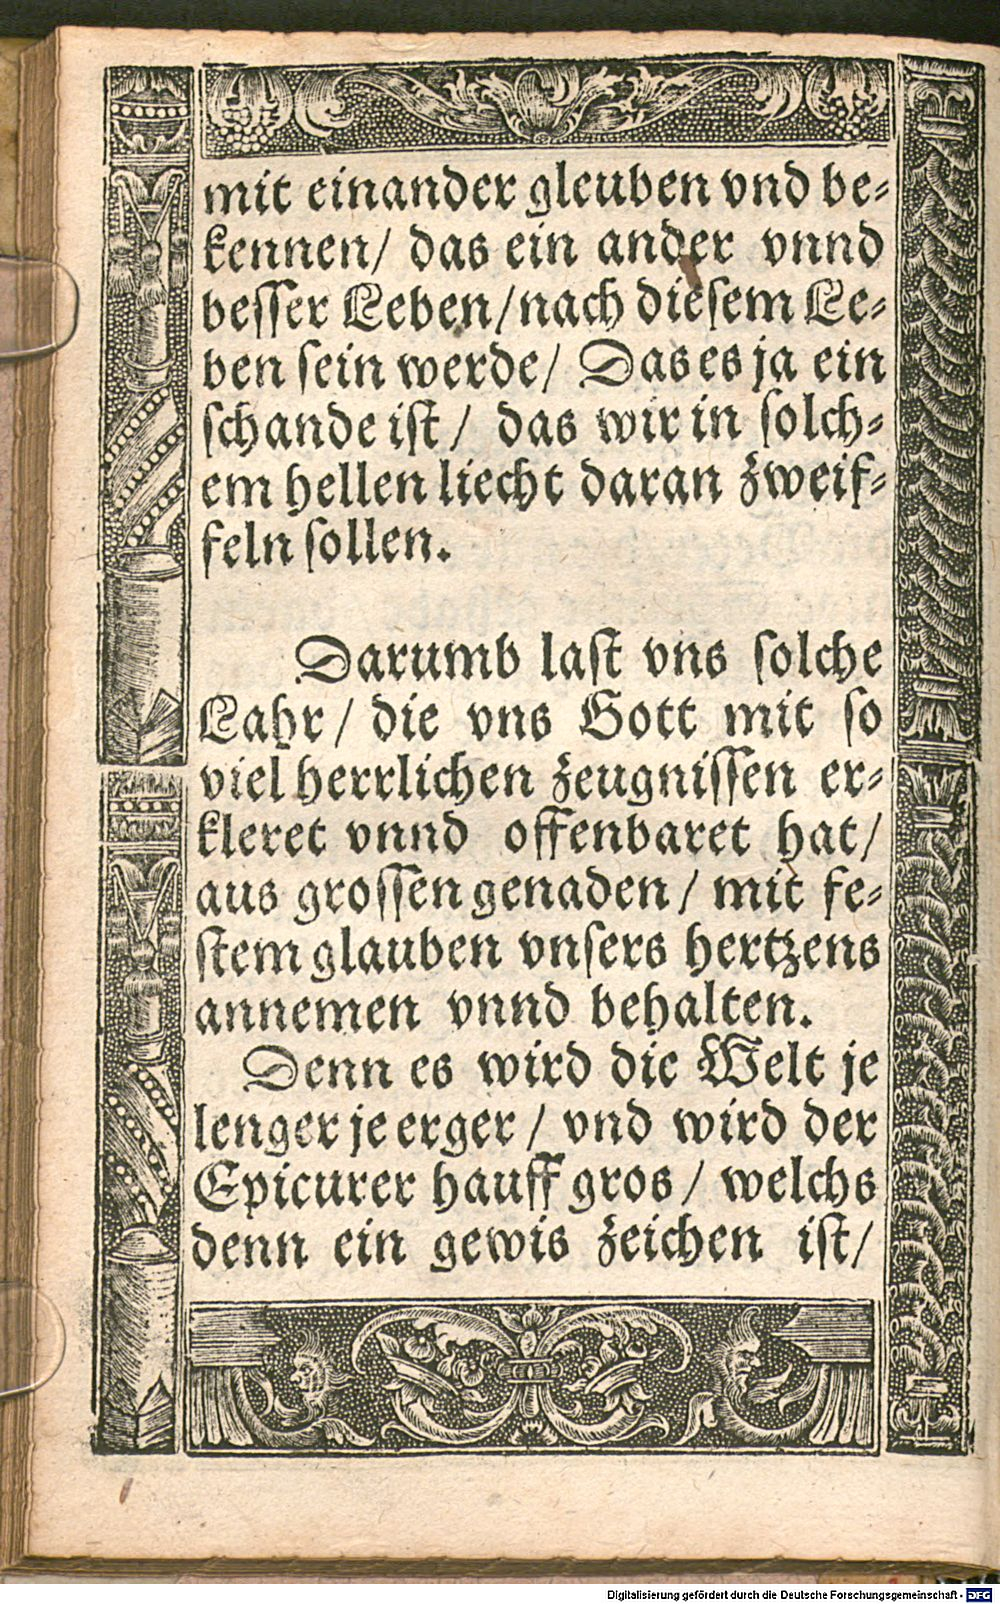 mit einander gleuben vnd be⸗
kennen/ das ein ander vnnd
besser Leben/nach diesem Le⸗
ben sein werde/ Das es ja ein
schande ist/ das wir in solch⸗
em hellen liecht daran zweif⸗
feln sollen.
Darumb last vns solche
Lahr/ die vns Gott mit so
viel herrlichen zeugnissen er⸗
kleret vnnd offenbaret hat/
aus grossen genaden/ mit fe⸗
stem glauben vnsers hertzens
annemen vnnd behalten.
Denn es wird die Welt je
lenger je erger/ vnd wird der
Epicurer hauff gros/ welchs
denn ein gewis zeichen ist/
Digitalisierung gefördert durch die Deutsche Forschungsgemeinschaft - DFG